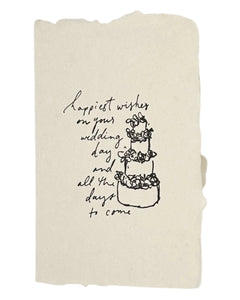 happiest wishes
on your
wedding
day
and
all the
days
to come